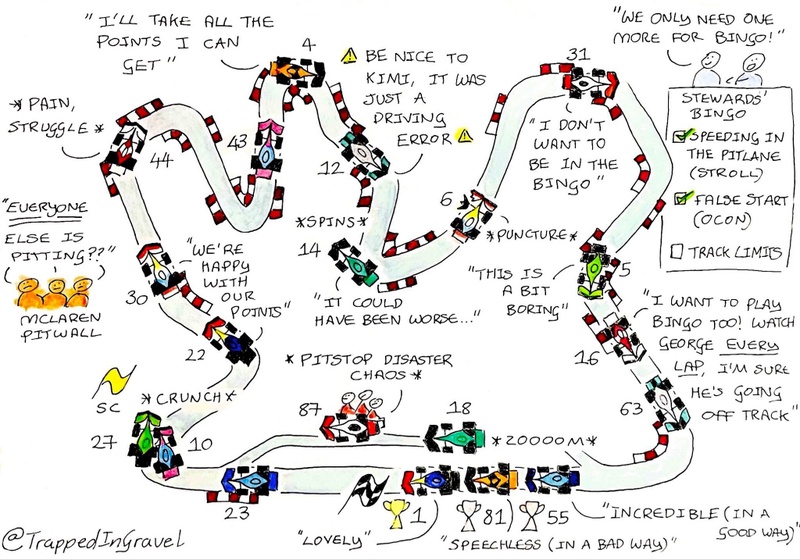 "I'LL TAKE ALL THE
POINTS I CAN
GET"
4
⚠ BE NICE TO
KIMI, IT WAS
JUST A
DRIVING
ERROR ⚠
31
"WE ONLY NEED ONE
MORE FOR BINGO!"
STEWARDS'
BINGO
☑ SPEEDING IN
THE PITLANE
(STROLL)
☑ FALSE START
(OCON)
☐ TRACK LIMITS
*PAIN,
STRUGGLE*
44
43
12
"I DON'T
WANT TO
BE IN THE
BINGO"
6
*PUNCTURE*
*SPINS*
14
"IT COULD
HAVE BEEN WORSE..."
"THIS IS
A BIT
BORING"
5
"EVERYONE
ELSE IS
PITTING??"
MCLAREN
PITWALL
30
"WE'RE
HAPPY
WITH
OUR
POINTS"
22
16
"I WANT TO PLAY
BINGO TOO! WATCH
GEORGE EVERY
LAP, I'M SURE
HE'S GOING
OFF TRACK"
63
SC
*CRUNCH*
27
10
*PITSTOP DISASTER
CHAOS*
87
18
*20000M*
23
1
81
55
"LOVELY"
"SPEECHLESS (IN A BAD WAY)"
"INCREDIBLE (IN A
GOOD WAY)"
@TrappedInGravel